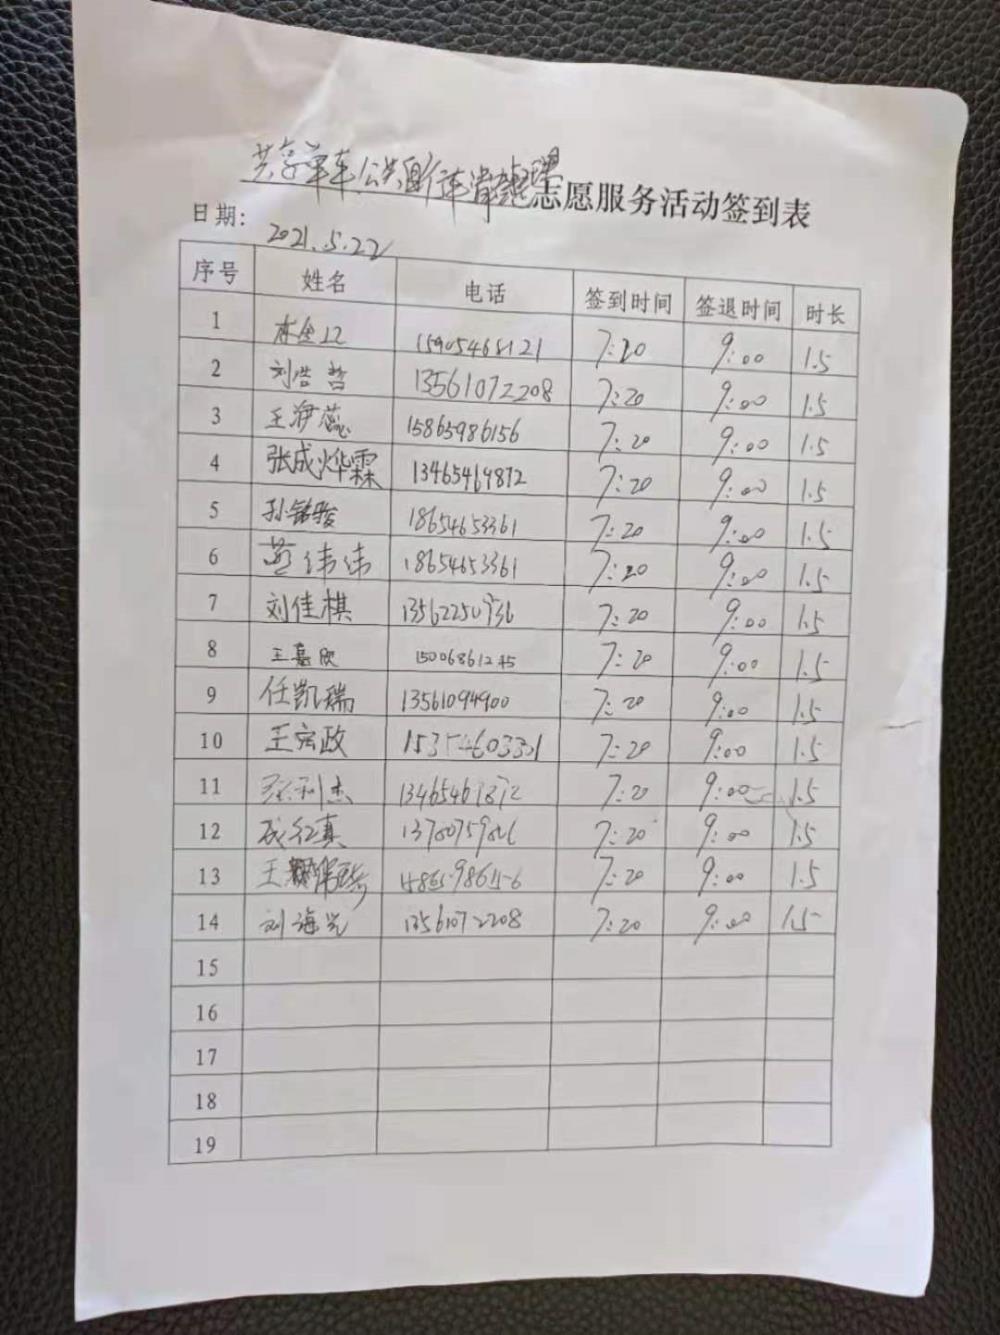 共享单车公共自行车清理志愿服务活动签到表
日期: 2021.5.22
序号 姓名 电话 签到时间 签退时间 时长
1 15905468121 7:20 9:00 1.5
2 刘浩哲 13561072208 7:20 9:00 1.5
3 王伊蕊 15865986156 7:20 9:00 1.5
4 张成烨霖 13465469872 7:20 9:00 1.5
5 孙铭骏 18654653361 7:20 9:00 1.5
6 燕伟伟 18654653361 7:20 9:00 1.5
7 刘佳棋 7:20 9:00 1.5
8 王嘉欣 7:20 9:00 1.5
9 任凯瑞 13561094900 7:20 9:00 1.5
10 王宏政 7:20 9:00 1.5
11 张利杰 7:20 9:00 1.5
12 成红真 7:20 9:00 1.5
13 王 15865986156 7:20 9:00 1.5
14 刘海光 13561072208 7:20 9:00 1.5
15
16
17
18
19